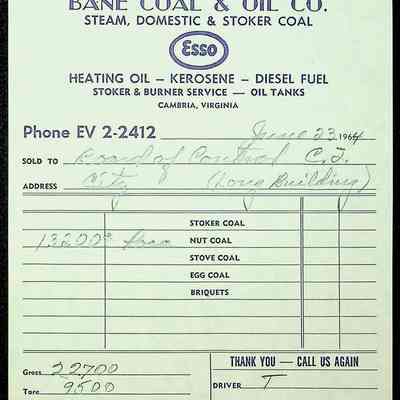 BANE COAL & OIL CO.
STEAM, DOMESTIC & STOKER COAL
Esso
HEATING OIL — KEROSENE — DIESEL FUEL
STOKER & BURNER SERVICE — OIL TANKS
CAMBRIA, VIRGINIA
Phone EV 2-2412 June 23 1964
SOLD TO Board of Control C.I.
ADDRESS City (Long Building)
STOKER COAL
13200# NUT COAL
STOVE COAL
EGG COAL
BRIQUETS
Gross 22700
Tare 9500
THANK YOU — CALL US AGAIN
DRIVER T